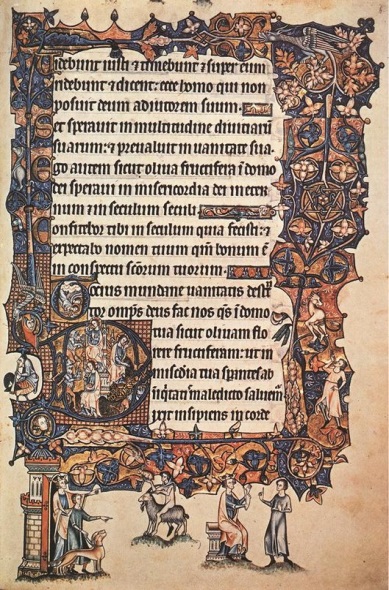 debunt iusti et timebunt et super eum
ridebunt et dicent: ecce homo qui non
posuit deum adiutorem suum.
et speravit in multitudine divitiarū
suarum: et prevaluit in vanitate sua
go autem sicut oliva fructifera ī domo
dei speravi in misericordia dei in eter
num et in seculum seculi
onfitebor tibi in seculum quia fecisti: et
expectabo nomen tuum qm̄ bonum ē
in conspectu scōrum tuorum.
deus
omp̄s deus fac nos qs̄ ī domo
tua sicut olivam
fructiferam: ut in
tua
salvemꝰ
dixit insipiens in corde